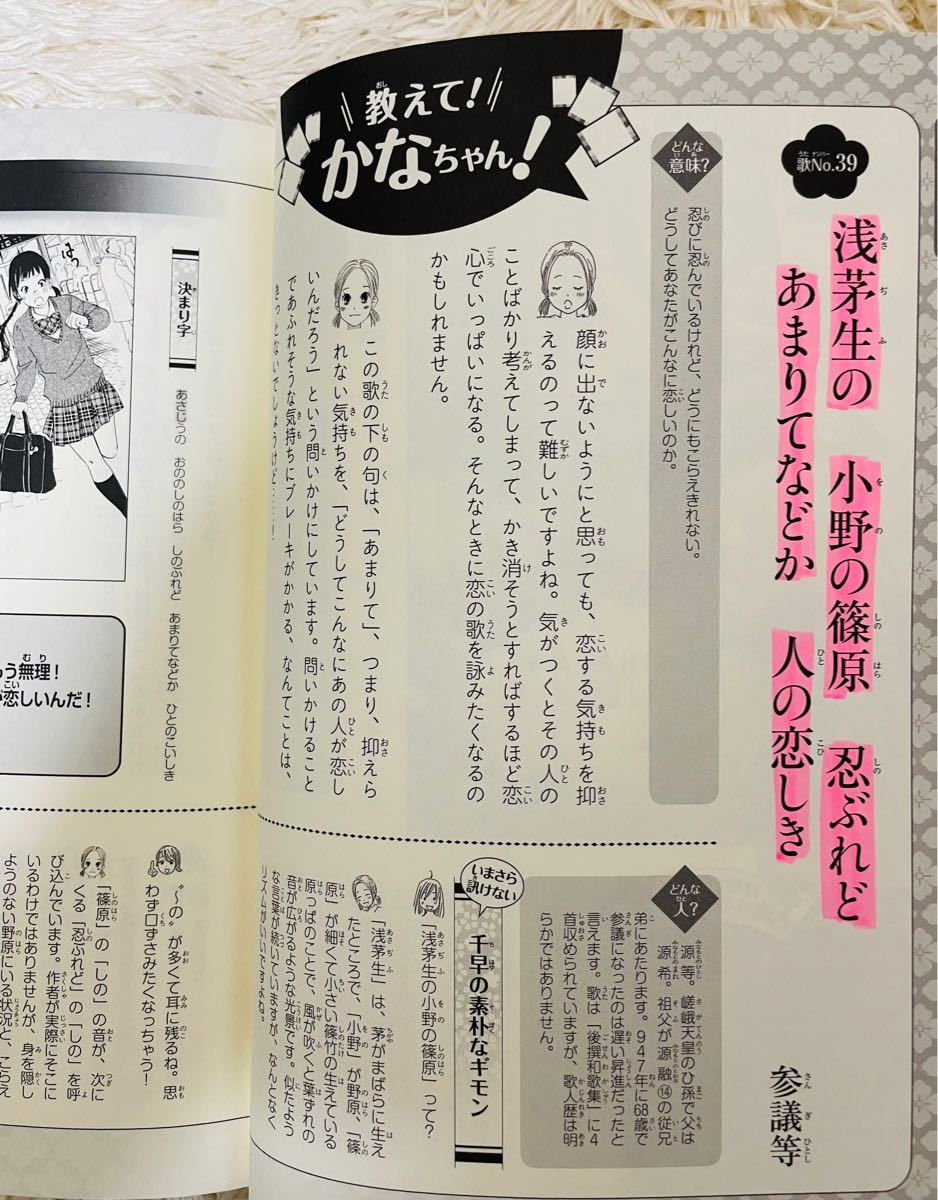 歌No.39
浅茅生の 小野の篠原 忍ぶれど
あまりてなどか 人の恋しき
参議等
どんな意味?
忍びに忍んでいるけれど、どうにもこらえきれない。
どうしてあなたがこんなに恋しいのか。
教えて!
かなちゃん!
顔に出ないようにと思っても、恋する気持ちを抑
えるのって難しいですよね。気がつくとその人の
ことばかり考えてしまって、かき消そうとすればするほど恋
心でいっぱいになる。そんなときに恋の歌を詠みたくなるの
かもしれません。
この歌の下の句は、「あまりて」、つまり、抑えら
れない気持ちを、「どうしてこんなにあの人が恋し
いんだろう」という問いかけにしています。問いかけること
であふれそうな気持ちにブレーキがかかる、なんてことは、
きっとないでしょうけど……!
どんな人?
源等。嵯峨天皇のひ孫で父は
源希。祖父が源融⑭の従兄
弟にあたります。947年に68歳で
参議になったのは遅い昇進だったと
言えます。歌は「後撰和歌集」に4
首収められていますが、歌人歴は明
らかではありません。
いまさら訊けない
千早の素朴なギモン
「浅茅生の小野の篠原」って?
「浅茅生」は、茅がまばらに生え
たところで、「小野」が野原、「篠
原」が細くて小さい篠竹の生えている
原っぱのことで、風が吹くと葉ずれの
音が広がるような光景です。似たよう
な言葉が続いていますが、なんとなく
リズムがいいですよね。
はっ
決まり字
あさじうの おののしのはら しのぶれど あまりてなどか ひとのこいしき
う無理!
恋しいんだ!
"〜の"が多くて耳に残るね。思
わず口ずさみたくなっちゃう!
「篠原」の「しの」の音が、次に
くる「忍ぶれど」の「しの」を呼
び込んでいます。作者が実際にそこに
いるわけではありませんが、身を隠し
ようのない野原にいる状況と、こらえ